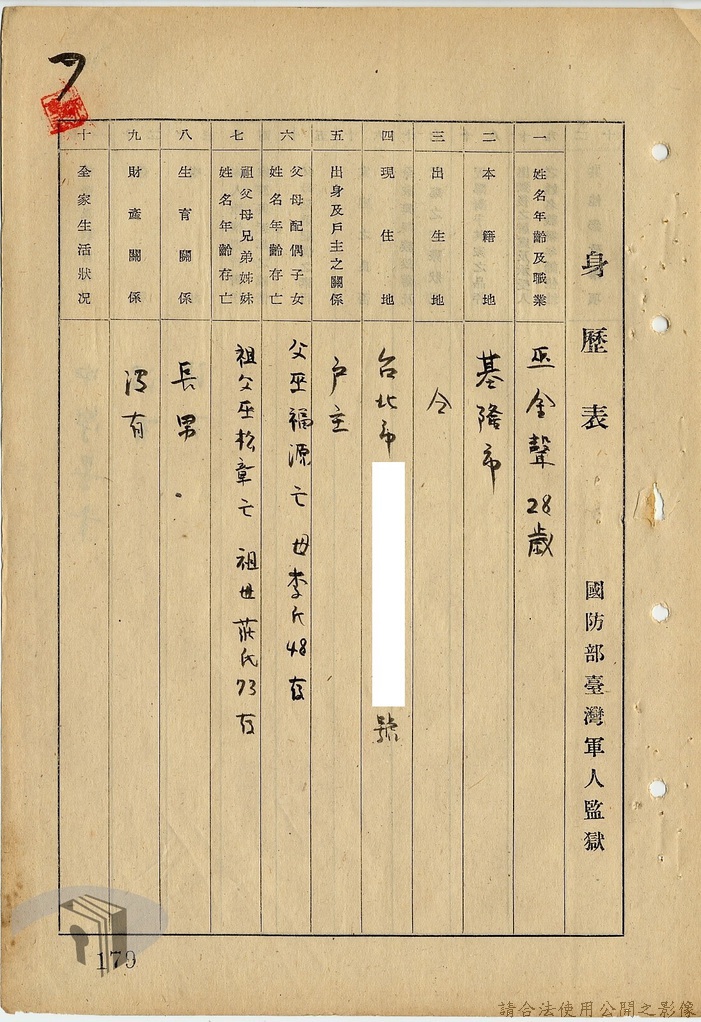 身歷表
國防部臺灣軍人監獄
一
姓名年齡及職業
巫金聲 28歲
二
本籍地
基隆市
三
出生地
仝
四
現住地
台北市
號
五
出身及戶主之關係
戶主
六
父母配偶子女
姓名年齡存亡
父巫福源亡 母李氏48存
七
祖父母兄弟姊妹
姓名年齡存亡
祖父巫松章亡 祖母莊氏73存
八
生育關係
長男
九
財產關係
沒有
十
全家生活狀況
179
請合法使用公開之影像